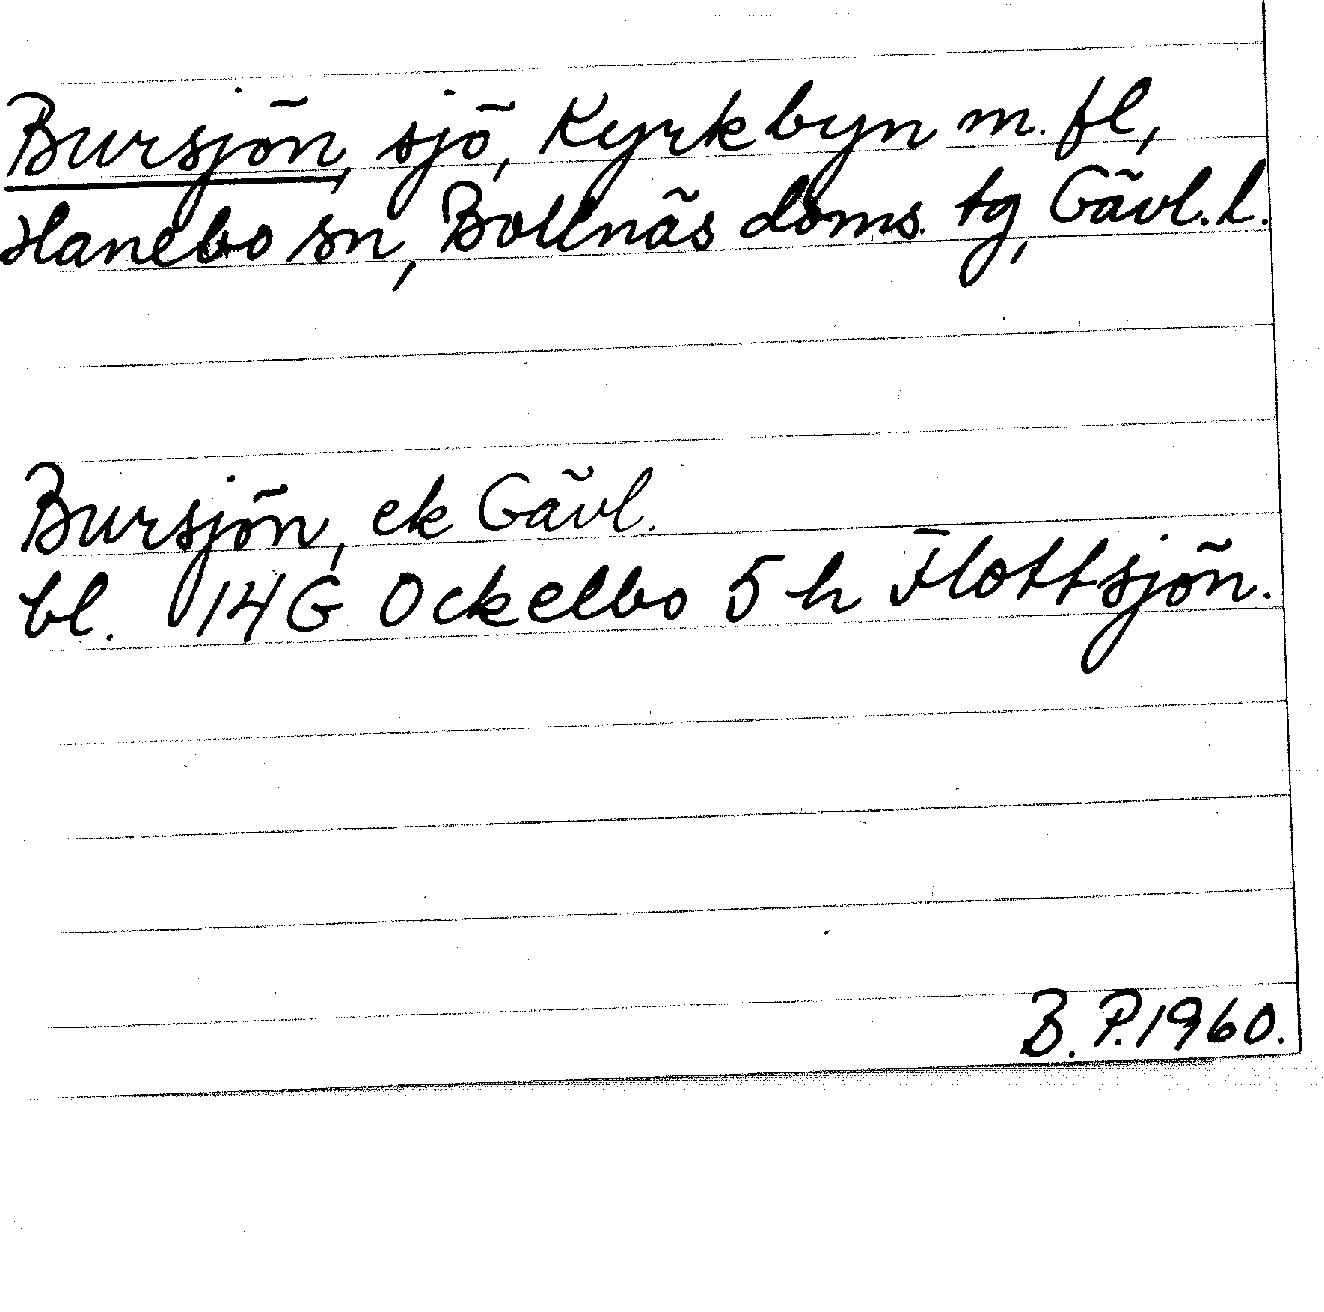 Bursjön, sjö, Kyrkbyn m. fl,
Hanebo sn, Bollnäs doms. tg, Gävl. l.
Bursjön, ek Gävl.
bl. 14 G Ockelbo 5 h Flottsjön.
B. P. 1960.